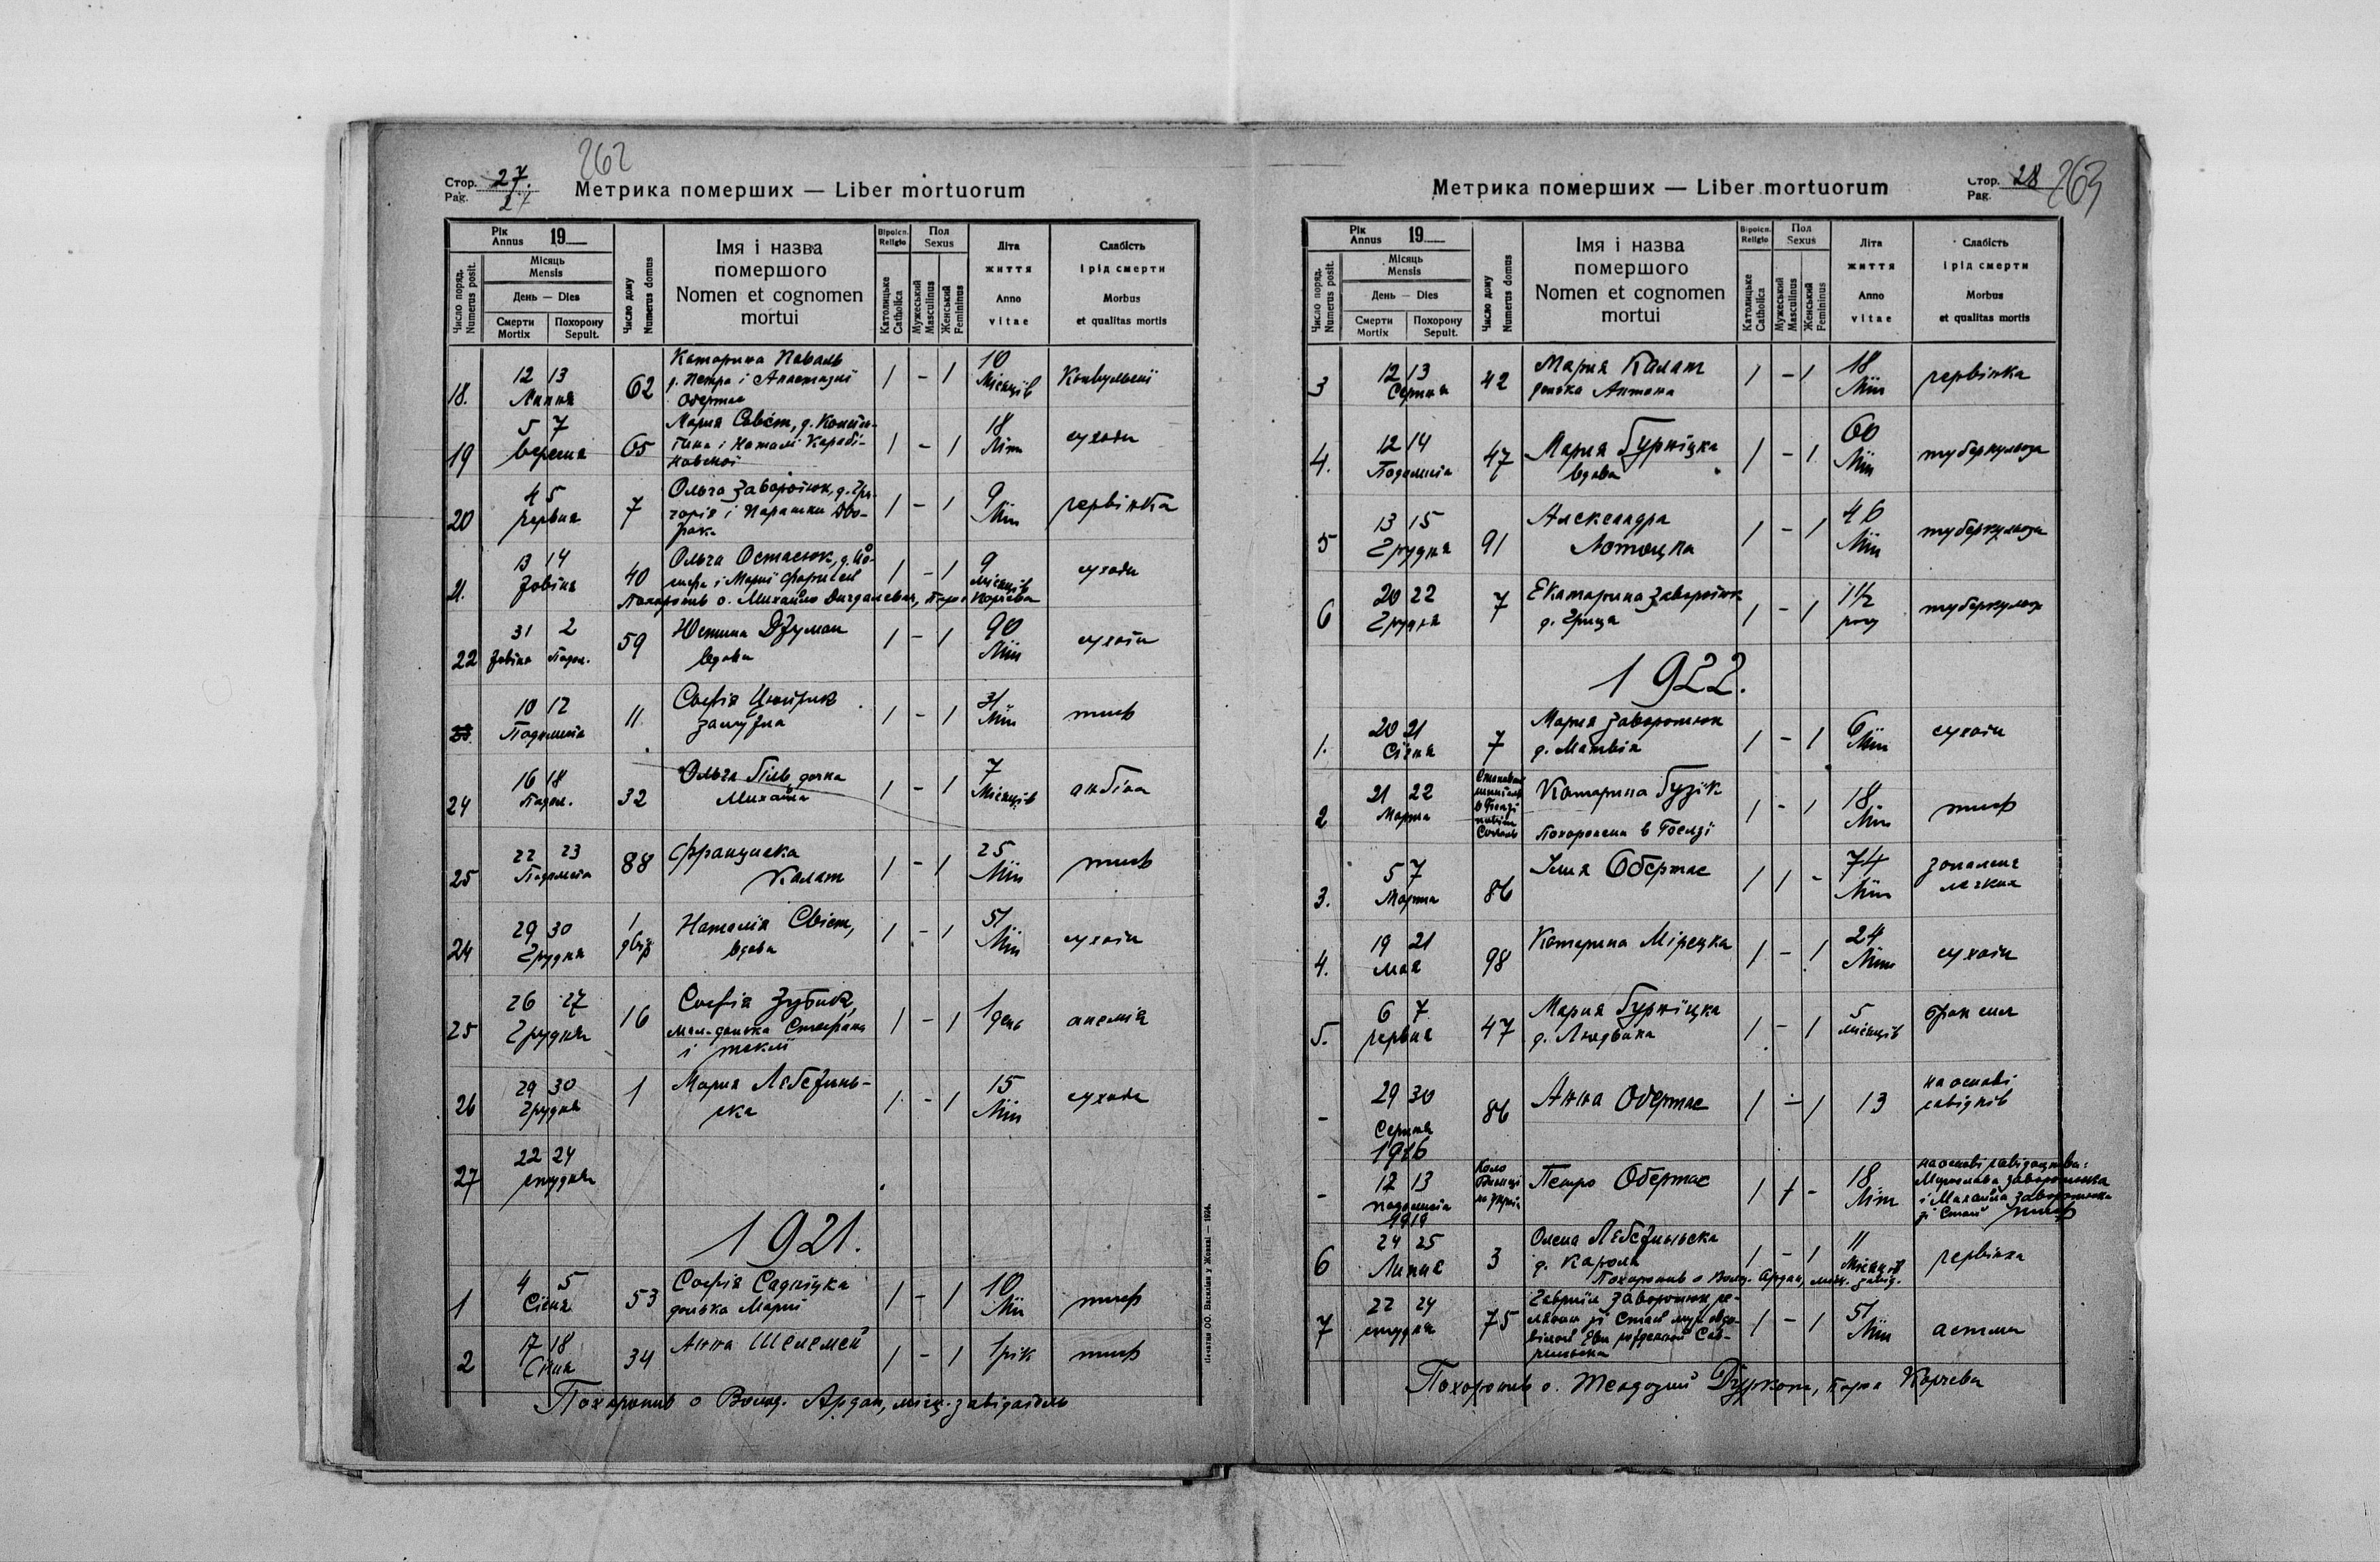 262
Стор. 27.
Pag. 27
Метрика померших — Liber mortuorum
Рік Annus 19
Місяць Mensis
День — Dies
Смерти Mortix
Похорону Sepult.
Число поряд. Numerus posit.
Число дому Numerus domus
Імя і назва
помершого
Nomen et cognomen
mortui
Віроісп. Religio
Католицьке Catholica
Пол Sexus
Мужеський Masculinus
Женський Femininus
Літа
життя
Anno
vitae
Слабість
і рід смерти
Morbus
et qualitas mortis
18. 12 13 Липня 62 Катарина Коваль 1 - 1 10 Місяців Конвульсиї
д. Петра і Анастазиї
Обертас
19 5 7 вересня 65 Мария Свіст, 1 - 1 18 Літ сухоти
20 4 5 червня 7 Ольга Заворотюк, 1 - 1 9 Літ червінка
21. 13 14 Жовтня 40 Ольга Остасюк, 1 - 1 9 Місяців сухоти
Похоронив о. Михайло
22 31 2 Жовтня Падол. 59 Юстина Джуман 1 - 1 90 Літ сухоти
вдова
23. 10 12 Падолиста 11 Софія 1 - 1 31 Літ тиф
замужна
24 16 18 Падол. 32 Ольга Біль, дочка 1 - 1 7 Місяців
Михайла
25 22 23 Падолиста 88 Францишка 1 - 1 25 Літ тиф
Калат
24 29 30 Грудня 1 двір Наталія Свіст, 1 - 1 51 Літ сухоти
вдова
25 26 27 Грудня 16 Софія Зубик, 1 - 1 1 день анемія
мал. донька Стефана
і Теклі
26 29 30 Грудня 1 Мария Лебединь- 1 - 1 15 Літ сухоти
ска
27 22 24 грудня
1921.
1 4 5 Січня 53 Софія Садніцка 1 - 1 10 Літ тиф
донька Мариї
2 17 18 Січня 34 Анна Шелемей 1 - 1 1 рік тиф
Похоронив о Волод. Ардан, місц. завідатель
Печатня ОО. Василіян у Жовкві — 1924.
Метрика померших — Liber mortuorum
Стор. 28
Pag.
263
Рік Annus 19
Місяць Mensis
День — Dies
Смерти Mortix
Похорону Sepult.
Число поряд. Numerus posit.
Число дому Numerus domus
Імя і назва
помершого
Nomen et cognomen
mortui
Віроісп. Religio
Католицьке Catholica
Пол Sexus
Мужеський Masculinus
Женський Femininus
Літа
життя
Anno
vitae
Слабість
і рід смерти
Morbus
et qualitas mortis
3 12 13 Серпня 42 Мария Калат 1 - 1 18 Літ червінка
донька Антона
4. 12 14 Падолиста 47 Мария Гурніцка 1 - 1 60 Літ туберкульоза
вдова
5 13 15 Грудня 91 Александра 1 - 1 46 Літ туберкульоза
Лотоцка
6 20 22 Грудня 7 Екатарина Заворотюк 1 - 1 1 1/2 року туберкульоза
д. Гриця
1922.
1. 20 21 Січня 7 Мария Заворотюк 1 - 1 6 Літ сухоти
д. Матвія
2 21 22 Марта Катарина Гузік 1 - 1 18. Літ тиф
Похоронена в
3. 5 7 Марта 86 Ілия Обертас 1 1 - 74 Літ запаленя
легких
4. 19 21 мая 98 Катарина Мірецка 1 - 1 24 Літ сухоти
5. 6 7 червня 47 Мария Гурніцка 1 - 1 5 місяців
д. Людвика
- 29 30 Серпня 1916 86 Анна Обертас 1 - 1 13 на основі
свідків
- 12 13 падолиста 1919 Петро Обертас 1 1 - 18 Літ на основі свідоцтва:
Мирослава Заворотюка
і Михайла Заворотюка
тиф
6 24 25 Липня 3 Олена Лебединьска 1 - 1 11 Місяців червінка
д. Кароля
Похоронив о Волод. Ардан, місц. завід.
7 22 24 грудня 75 Гавриїл Заворотюк 1 - 1 51 Літ астма
Похоронив о. Теодозий Дуркот, парох Карчева